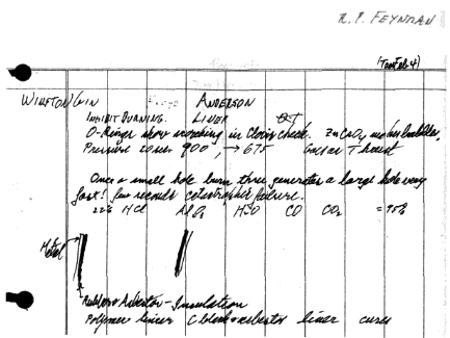 R. P. FEYNMAN
(Tues Feb 4)
WINFTON GIN ANDERSON
INHIBIT BURNING. LINER QT
O-Rings show scorching in Clovis check. ZnCrO4 makes bubbles.
Pressure 900, → 675 Thrust
Once a small hole burn three generates a large hole very
fast! few seconds catastrophic failure.
22% HCl H2O CO CO2 = 95%
Metal
Rubber + Asbestos - Insulation
Polymer liner C black + asbestos liner cures